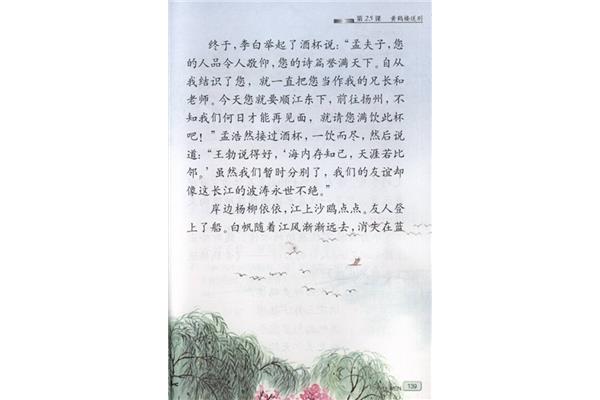 第25课 黄鹤楼送别
终于，李白举起了酒杯说：“孟夫子，您
的人品令人敬仰，您的诗篇誉满天下。自从
我结识了您，就一直把您当作我的兄长和
老师。今天您就要顺江东下，前往扬州，不
知我们何日才能再见面，就请您满饮此杯
吧！”孟浩然接过酒杯，一饮而尽，然后说
道：“王勃说得好，‘海内存知己，天涯若比
邻。’虽然我们暂时分别了，我们的友谊却
像这长江的波涛永世不绝。”
岸边杨柳依依，江上沙鸥点点。友人登
上了船。白帆随着江风渐渐远去，消失在蓝
139